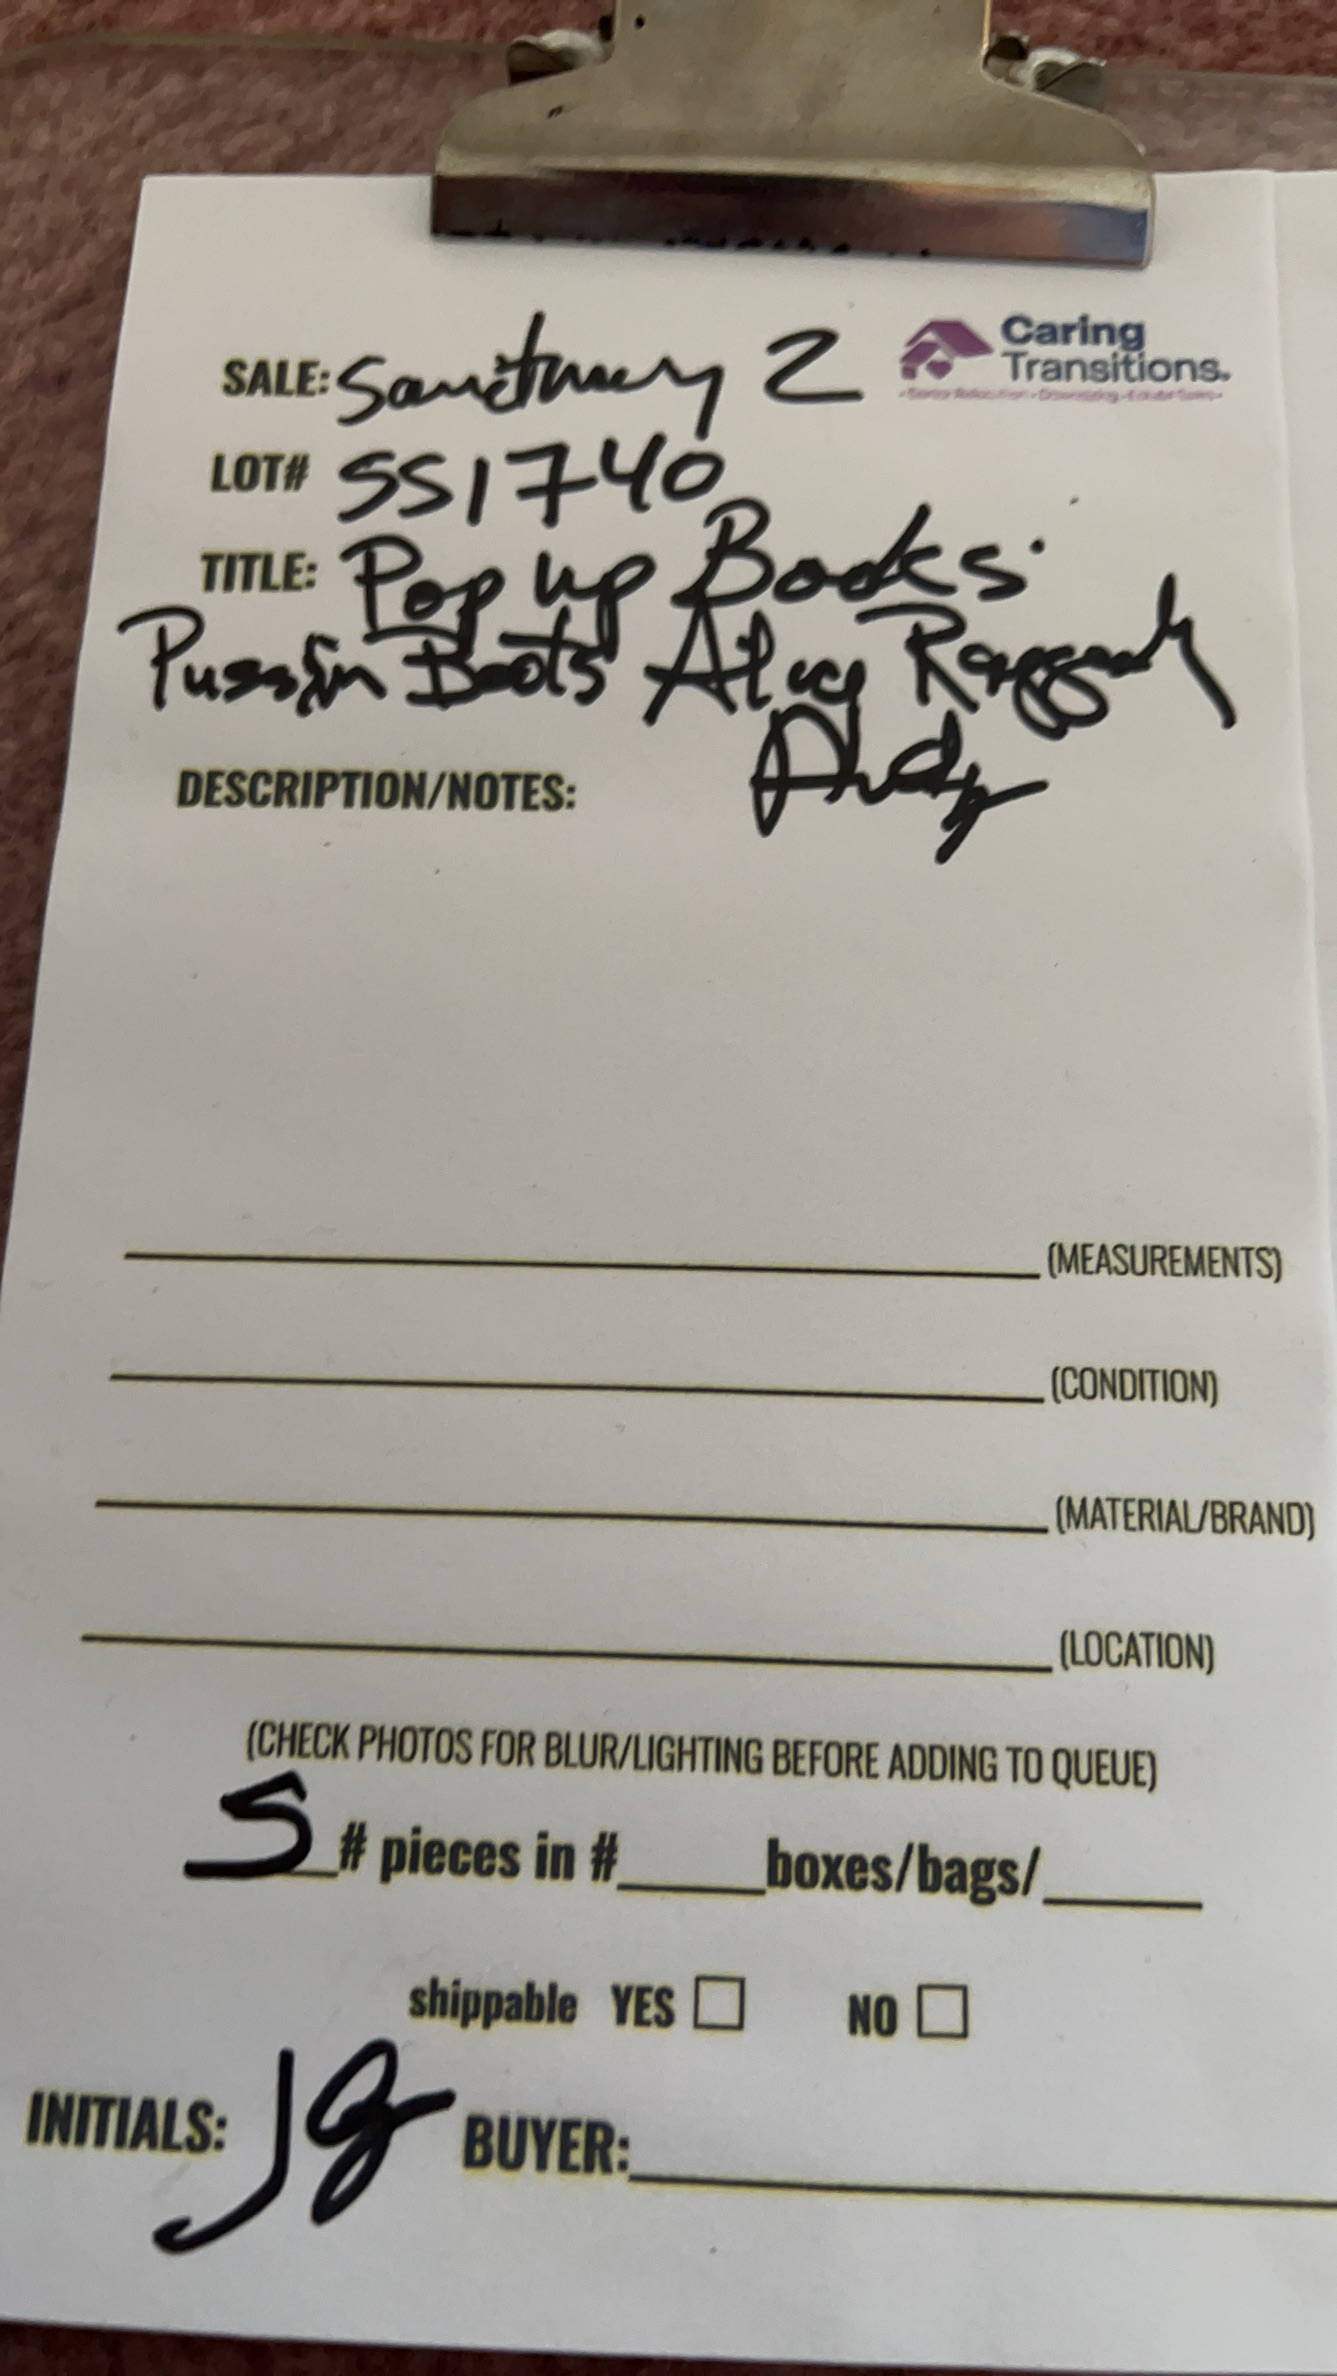 SALE: Sanctuary 2
Caring
Transitions.
LOT# SS1740
TITLE: Pop up Books:
Puss in Boots Alice Raggedy
Andy
DESCRIPTION/NOTES:
(MEASUREMENTS)
(CONDITION)
(MATERIAL/BRAND)
(LOCATION)
(CHECK PHOTOS FOR BLUR/LIGHTING BEFORE ADDING TO QUEUE)
5 # pieces in #_____boxes/bags/_____
shippable YES ☐ NO ☐
INITIALS: JG BUYER: